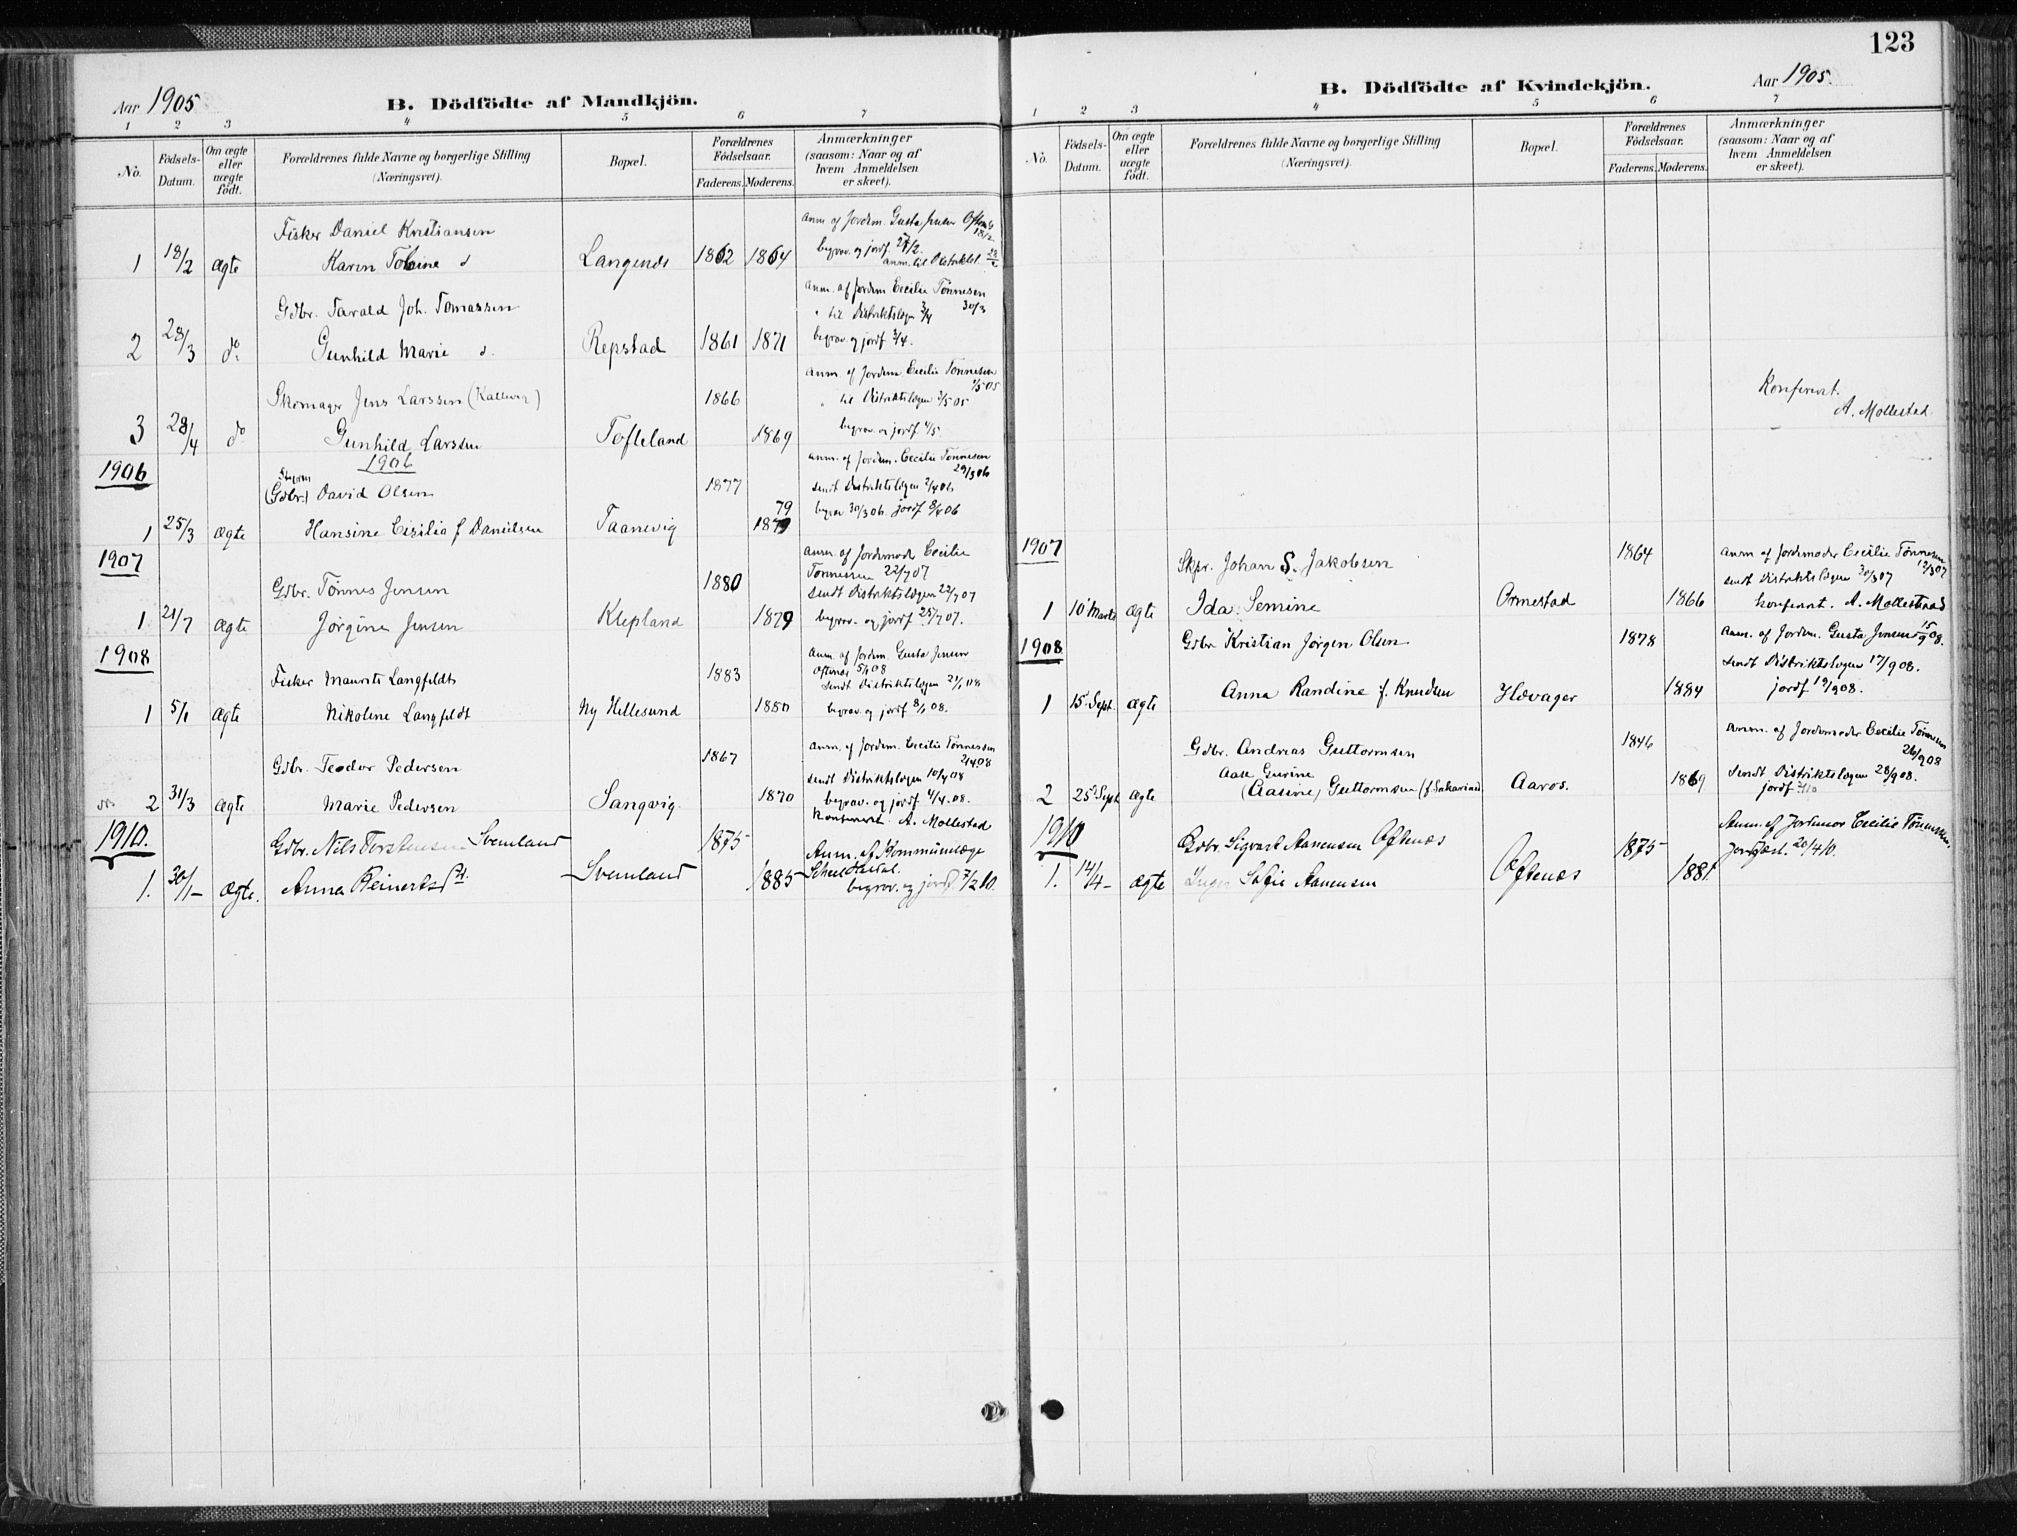 Aar 1905
B. Dödfödte af Mandkjön.
1 2 3 4 5 6 7
No.
Födsels-Datum.
Om ægte eller uægte födt.
Forældrenes fulde Navne og borgerlige Stilling (Næringsvei).
Bopæl.
Forældrenes Födselsaar.
Faderens. Moderens.
Anmærkninger (saasom: Naar og af hvem Anmeldelsen er skeet).
Fisker Daniel Kristiansen
anm af Jordem. Gusta
18/2
1 18/2 ægte Karen Tobine d Langenes 1862 1864 begrav. og jordf. 27/2.
anm. til Distriktsl.
Gdbr. Tarald Joh. Tomassen
anm. af Jordem Cecilie Tønnesen 30/3
" til Distriktslægen 3/4
2 28/3 do Gunhild Marie d. Repstad 1861 1871 begrav. og jordf 3/4.
Skomager Jens Larssen (Kallevig) 1866
anm. af Jordem Cecilie Tønnesen 1/5 05
" til Distriktslægen 3/5 05
3 28/4 do Gunhild Larssen Tofteland 1869 begrav. og jordf 4/5.
1906
1906
(Gdbr.) David Olsen 1877
anm. af Jordem. Cecilie Tønnesen 29/3 06
sendt Distriktslægen 2/4 06
79
1 25/3 ægte Hansine Cecilia f Danielsen Taanevig 1879 begrav 30/3 06. jordf 8/4 06
1907
Gdbr. Tønnes Jensen 1880
anm. af Jordemod Cecilie
Tønnesen 22/7 07
sendt Distriktslægen 22/7 07
1 21/7 ægte Jørgine Jensen Klepland 1879 begrav. og jordf 25/7 07.
1908
Fisker Maurits Langfeldt 1883
anm. af Jordem Gusta Jensen
Oftenes 5/1 08
sendt Distriktslægen 21/1 08
1 5/1 ægte Nikoline Langfeldt Ny Hellesund 1880 begrav. og jordf 8/1 08.
Gdbr. Teodor Pedersen 1867
anm. af Jordem. Cecilie Tønnessen 2/4 08
sendt Distriktslægen 10/4 08
2 31/3 ægte Marie Pedersen Langvig. 1870 begrav. og jordf 4/4. 08.
Konfereret. A. Mollestad
1910.
Gdbr. Nils Terstensen Svenland 1875
Anm. af Kommunelæge
1. 30/1 - ægte. Anna Reinertsd Svenland 1885
begrav. og jordf 7/2 10.
123
Aar 1905.
B. Dödfödte af Kvindekjön.
1 2 3 4 5 6 7
No.
Födsels-Datum.
Om ægte eller uægte födt.
Forældrenes fulde Navne og borgerlige Stilling (Næringsvei).
Bopæl.
Forældrenes Födselsaar.
Faderens. Moderens.
Anmærkninger (saasom: Naar og af hvem Anmeldelsen er skeet).
Konfereret.
A. Mollestad
1907
Skpr. Johan S. Jakobsen 1864
anm af Jordemoder Cecilie Tønnesen 19/3 07
sendt Distriktslægen 30/3 07
1 10 Marts ægte Ida Semine Ormestad 1866 Konferert. A. Mollestad
1908
Gdbr. Kristian Jørgen Olsen 1878
anm. af Jordem. Gusta Jensen 15/9 08.
sendt Distriktslægen 17/9 08.
1 15 Sept. ægte Anna Randine f. Knudsen Høvager 1884 jordf 19/9 08.
Gdbr. Andreas Guttormsen 1846
anm. af Jordemoder Cecilie Tønnesen 26/9 08
Aase Gurine
2 25 Sept ægte (Aasine) Guttormsen Aaros. 1869 sendt Distriktslægen 28/9 08.
jordf
1910
Gdbr. Sigvart Aanensen Oftenæs 1875
Anm. af Jordmor Cecilie Tønnessen
1. 14/4 - ægte Inger Sofie Aanensen Oftenæs 1881
Jordfæst. 20/4 10.